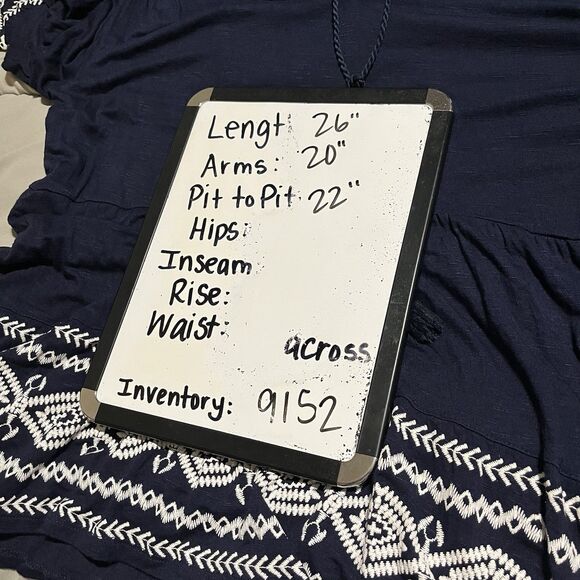 Lengt: 26"
Arms: 20"
Pit to Pit: 22"
Hips:
Inseam
Rise:
Waist:
across
Inventory: 9152